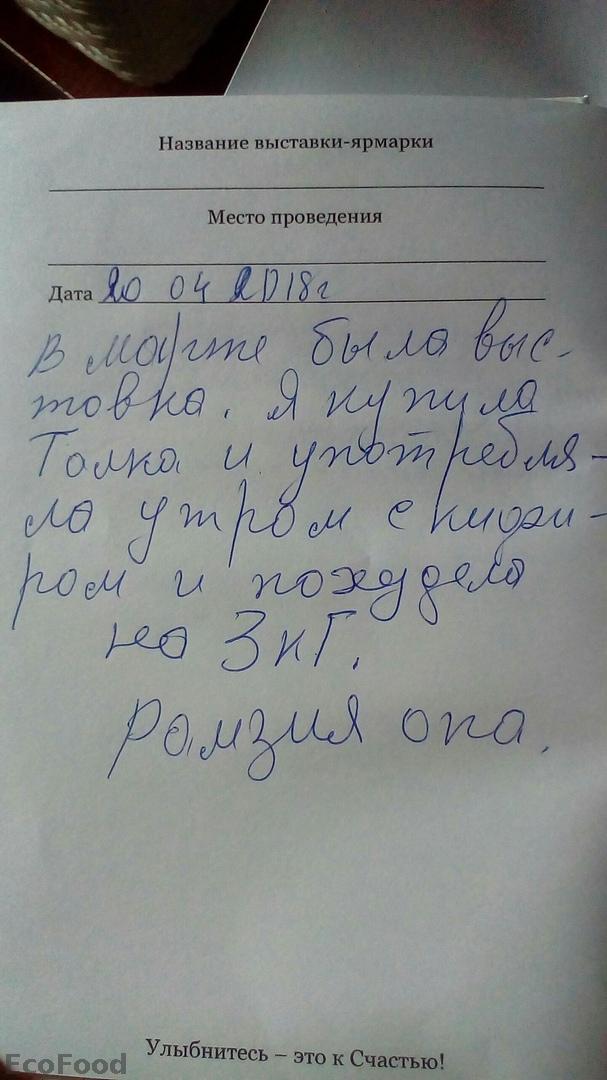 Название выставки-ярмарки
Место проведения
Дата 20 04 2018г
В марте была выс-
товка. Я купила
Толка и употребля-
ла утром с кифи-
ром и похудела
на 3 кг.
Рамзия опа.
Улыбнитесь – это к Счастью!
EcoFood